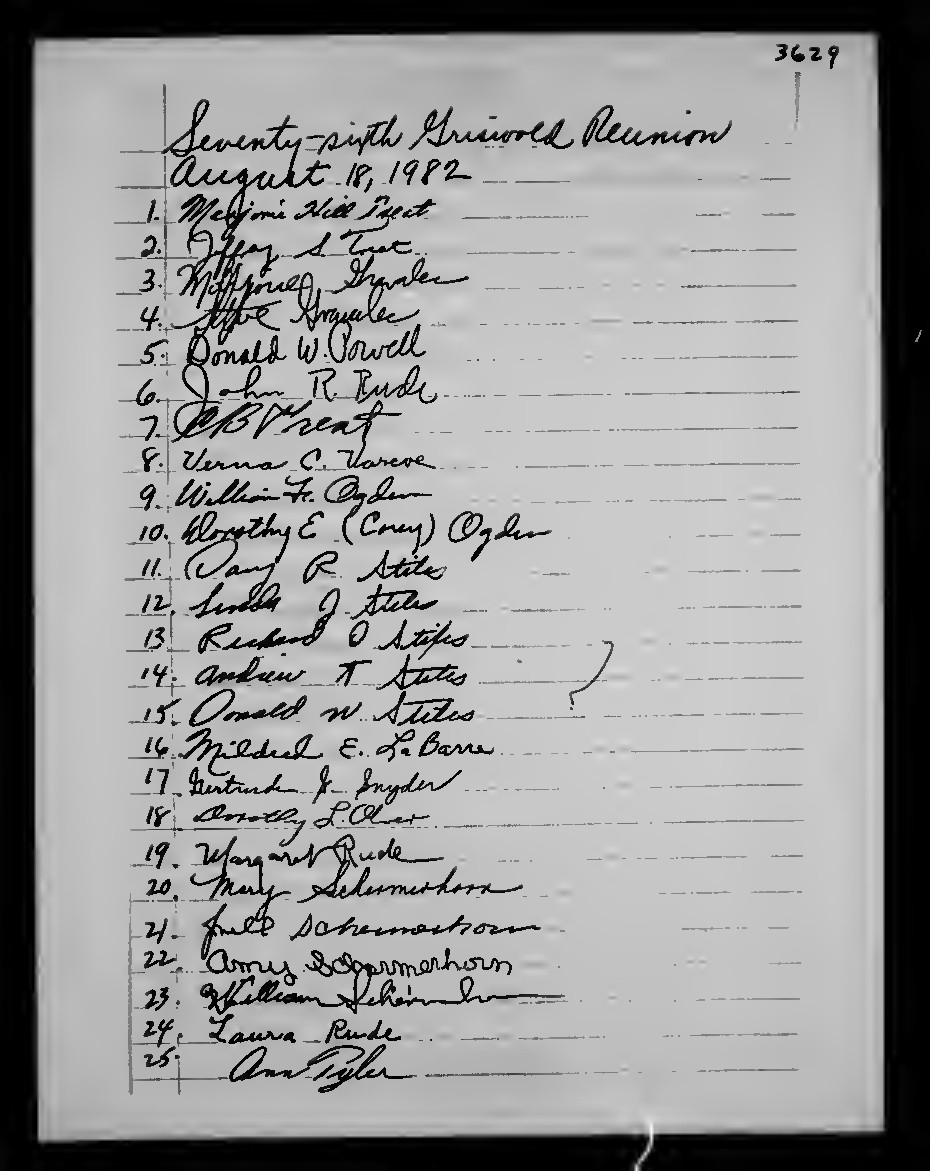 3629
Seventy-sixth Griswold Reunion
August 18, 1982
1. Marjorie Hill Treat
2. Jeffrey S Treat
3. Marjorie
4.
5. Donald W. Powell
6. John R. Rude
7. CB Treat
8. Verna C. Varcoe
9. William H. Ogden
10. Dorothy E (Corey) Ogden
11. R. Stiles
12. Linda J Stiles
13 Richard O Stiles
14. Andrew T Stiles
15. Donald W Stiles
16 Mildred E. LaBarre
17 Gertrude J. Snyder
18 Dorothy L. Oliver
19. Margaret Rude
20. Mary Schermerhorn
21. Schermerhorn
22. Amy Schermerhorn
23. William
24. Laura Rude
25. Ann Tyler